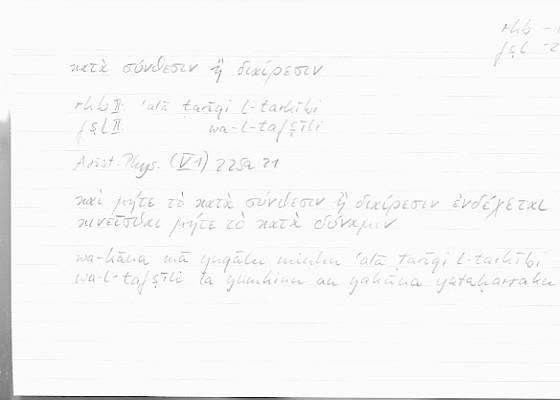 rkb -
fṣl -
κατὰ σύνθεσιν ἢ διαίρεσιν
rkb II: ʿalā ṭarīqi l-tarkībi
fṣl II: wa-l-tafṣīli
Arist. Phys. (V 1) 225a 21
καὶ μήτε τὸ κατὰ σύνθεσιν ἢ διαίρεσιν ἐνδέχεται
κινεῖσθαι μήτε τὸ κατὰ δύναμιν
wa-kāna mā yuqālu minhu ʿalā ṭarīqi l-tarkībi
wa-l-tafṣīli lā yumkinu an yakūna yataḥarraku